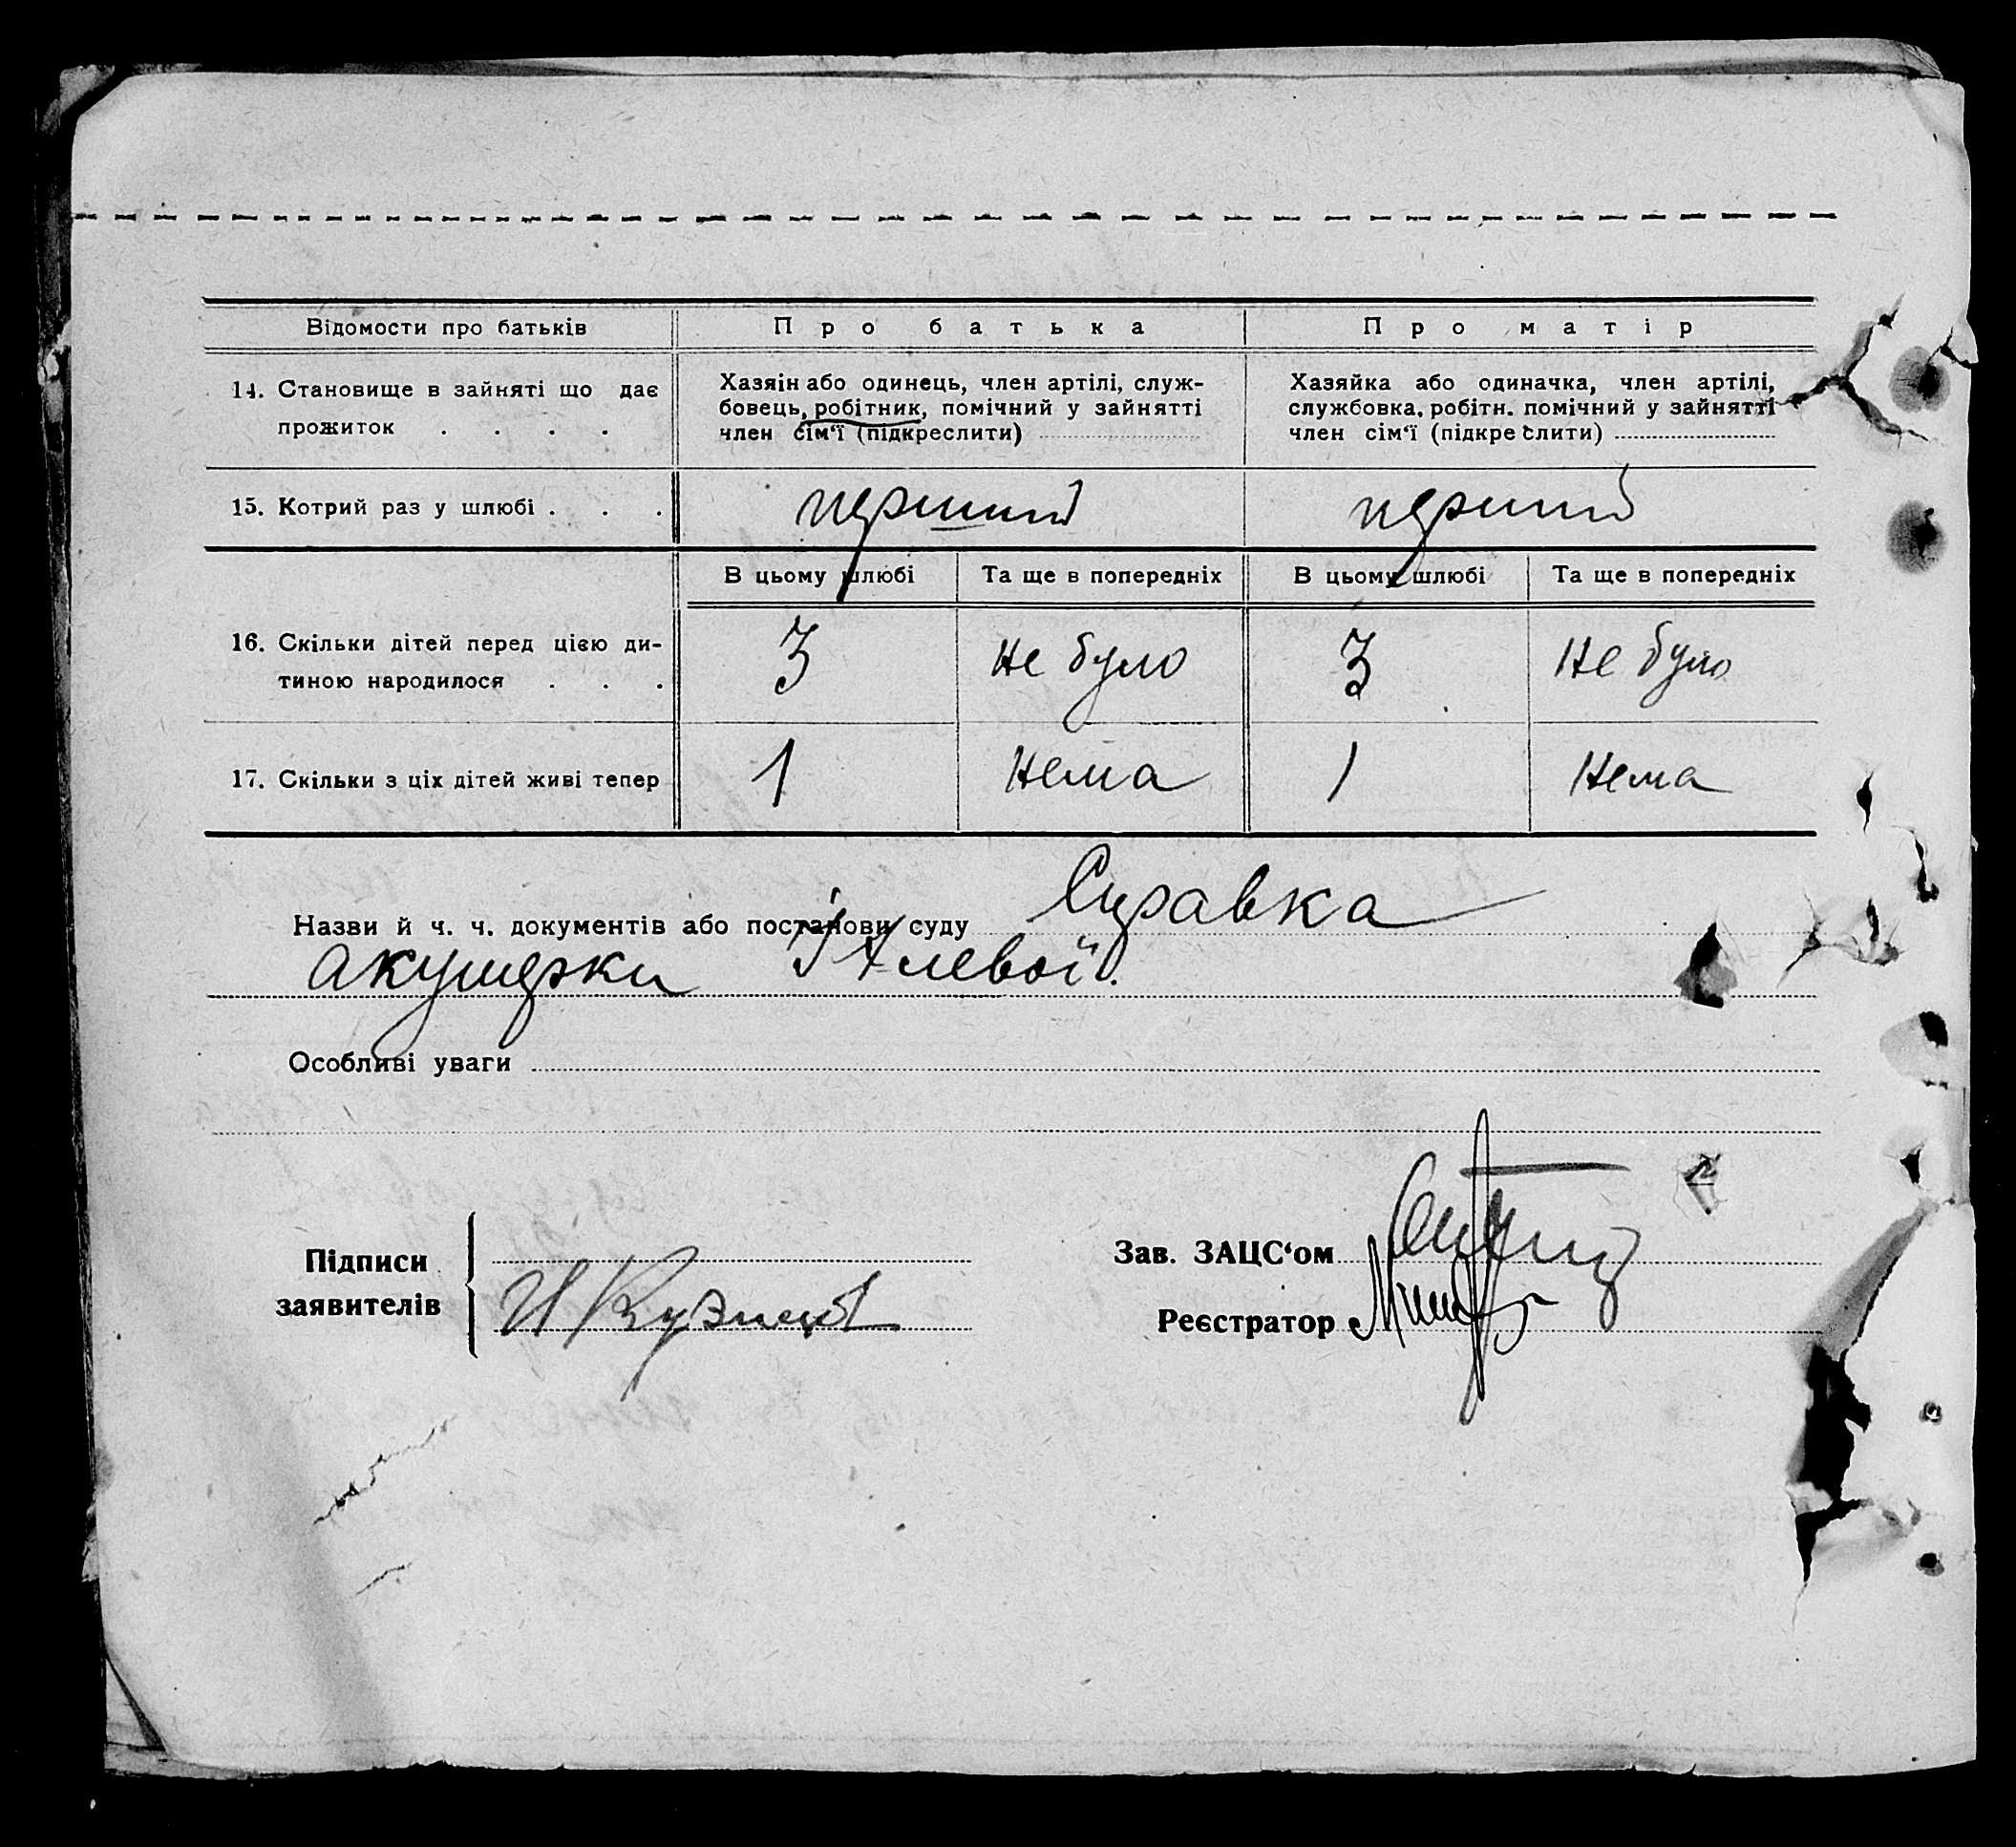 Відомости про батьків Про батька Про матір
14. Становище в зайняті що дає
прожиток . . . .
Хазяін або одинець, член артілі, служ-
бовець, робітник, помічний у зайнятті
член сім‘ї (підкреслити)
Хазяйка або одиначка, член артілі,
службовка, робітн. помічний у зайнятті
член сім‘ї (підкреслити)
15. Котрий раз у шлюбі . . . перший перший
В цьому шлюбі Та ще в попередніх В цьому шлюбі Та ще в попередніх
16. Скільки дітей перед цією ди-
тиною народилося . . .
3 Не було 3 Не було
17. Скільки з ціх дітей живі тепер 1 Нема 1 Нема
Назви й ч. ч. документів або постанови суду Справка
акушерки
Особливі уваги
Підписи
заявителів
И Кузнецов
Зав. ЗАЦС‘ом
Реєстратор